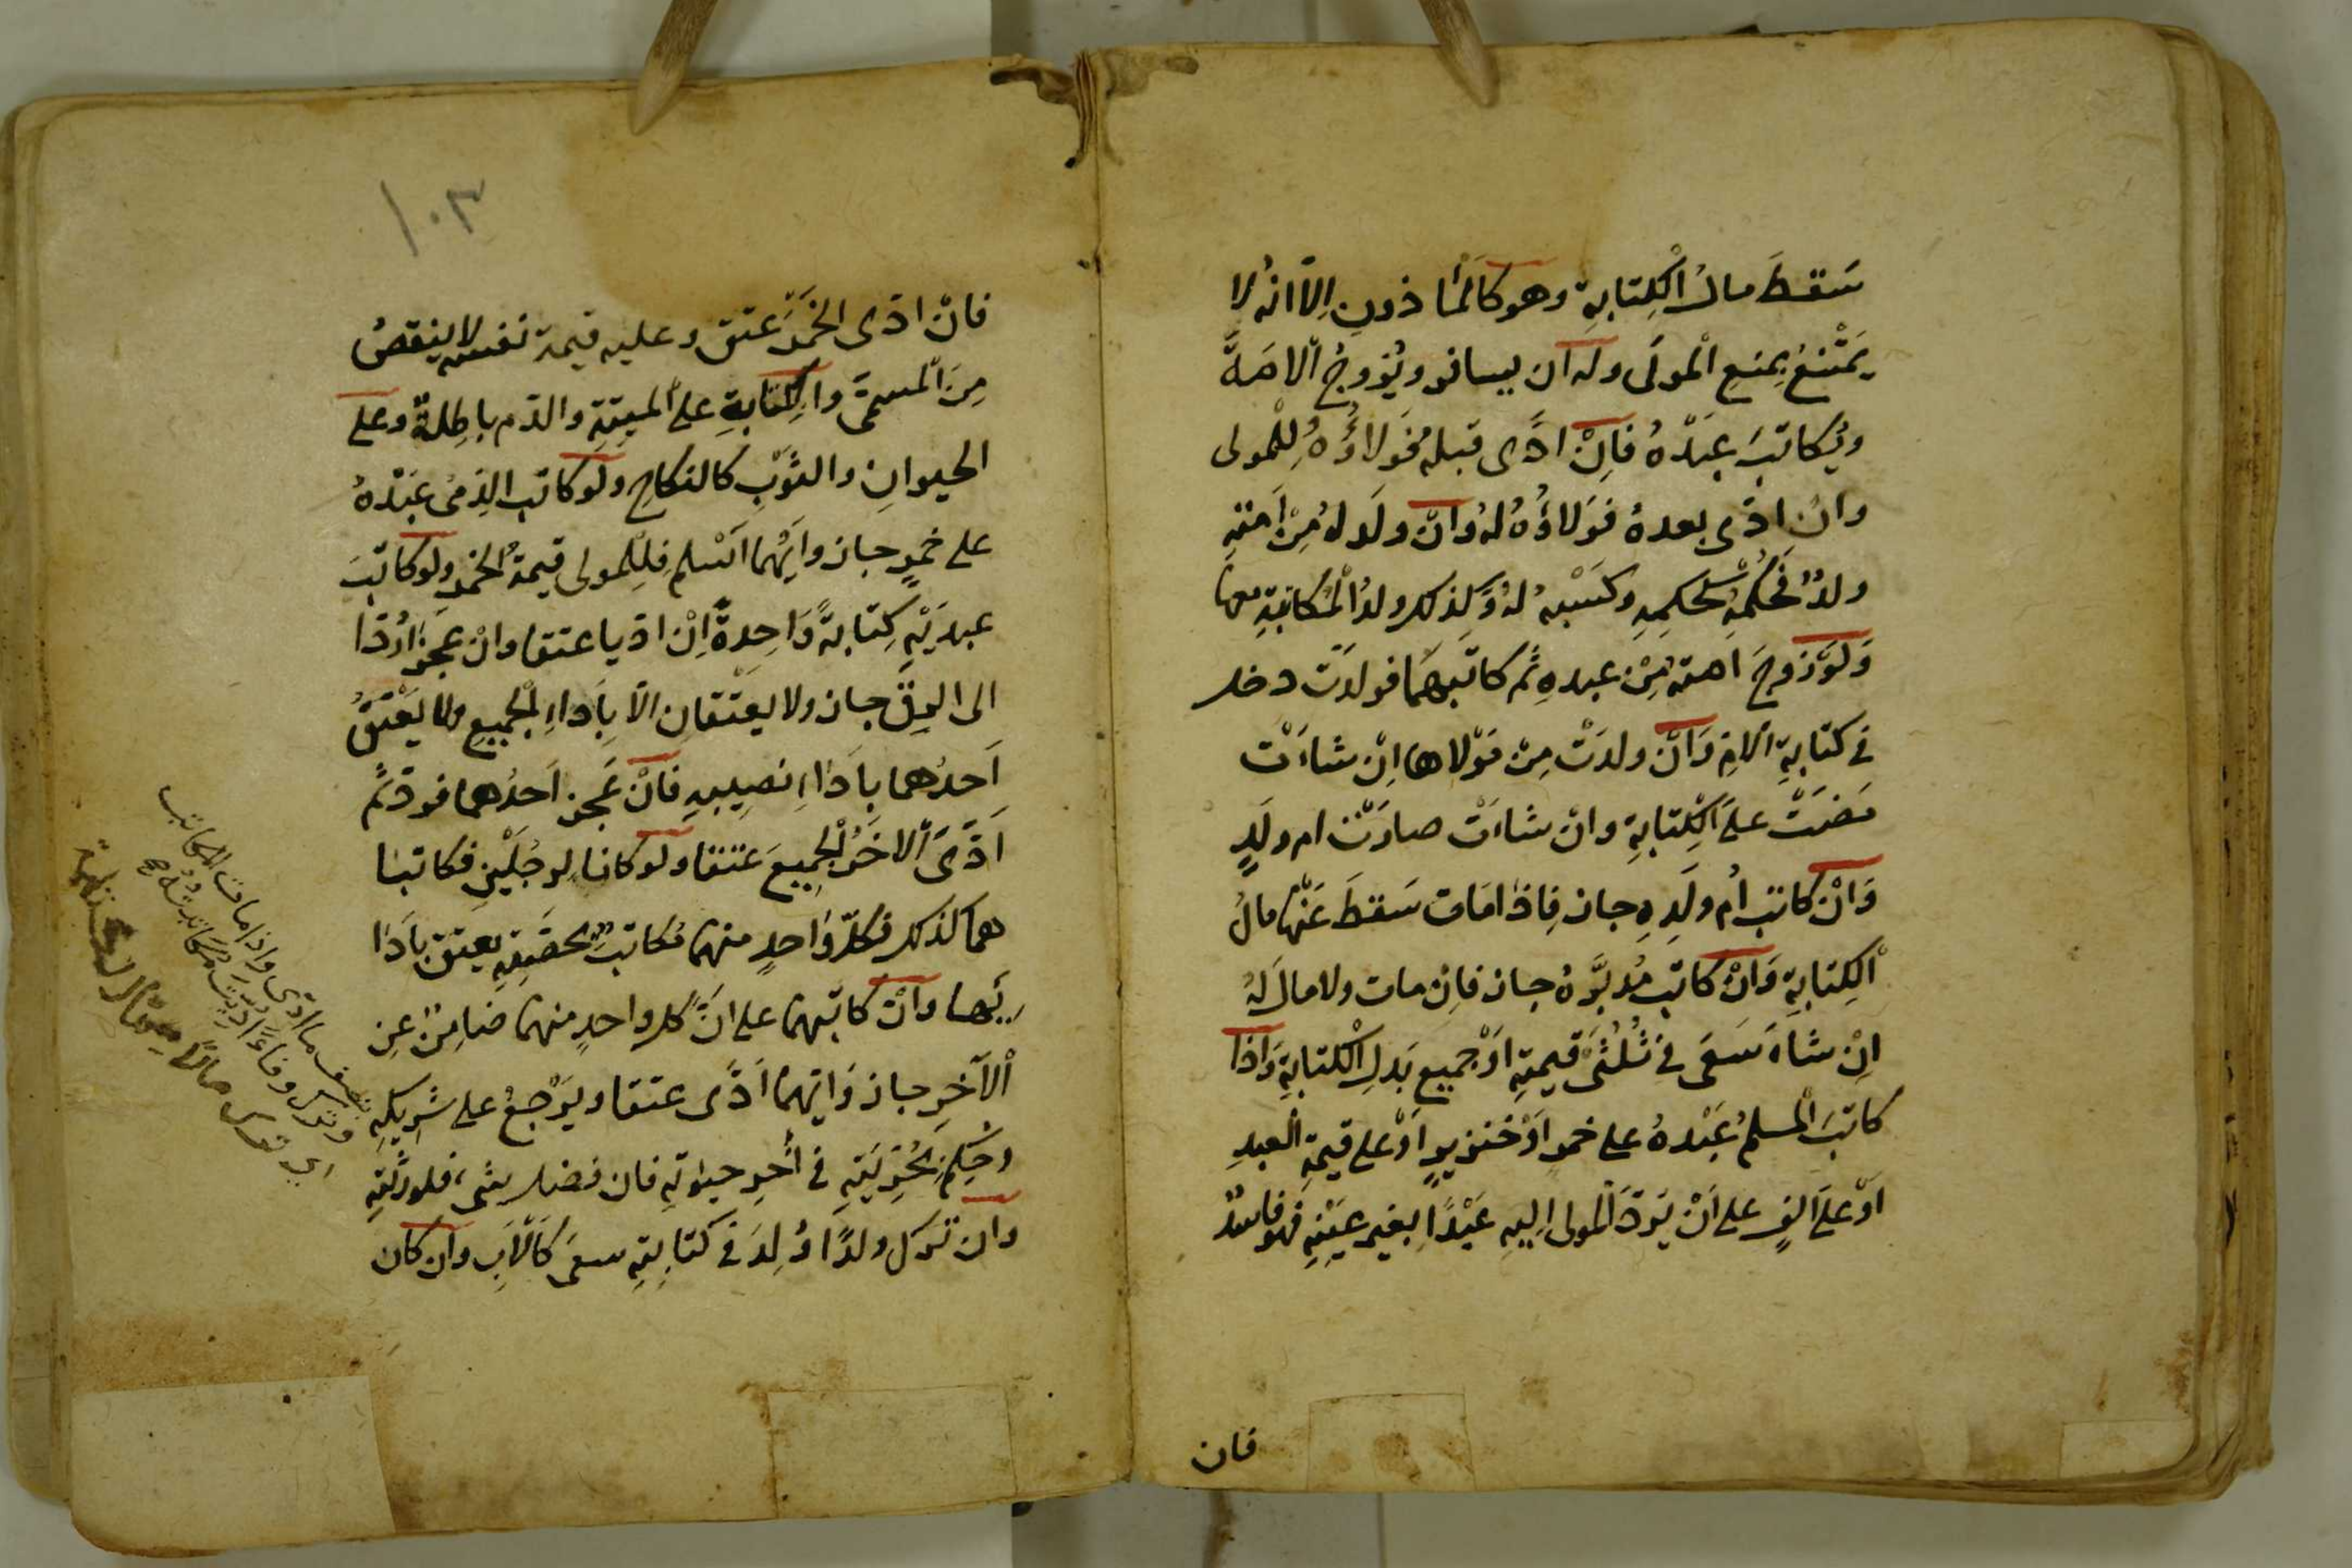 سَقطَ مالُ الْكِتابةِ وهو كَالْمَاذونِ اِلّا انهُ لا
يَمْتْنعُ بِمنعِ الْمولَى وله ان يسافر ويُزوجُ الامَةَ
ويُكاتبَ عبَدْهُ فاِنْ ادَّى قبلهُ فَولاؤُهُ لِلْمولى
وان ادّى بعدهُ فوَلاؤُهُ لهُ وانْ ولَد لهُ مِنْ اَمتهِ
ولدٌ فحُكمُهُ كحُكمِهِ وكسَبْهُ لهُ وَكذلك ولدُ الْمُكاتبةِ معها
وَلوْ زوجَ امتهُ مِنْ عبدهِ ثم كاتبهمَا فولدَت دخل
فى كتابةِ الامِ وَانْ ولدَتْ مِنْ مَوْلاها اِنْ شاءَت
مَضتْ علَى الكِتابةِ وانْ شاءت صارَتْ ام ولَدٍ
وَانْ كاتب اُم ولَدِهِ جاز فاِذا مَات سَقطَ عَنْها مالُ
الْكِتابةِ وَانْ كاتب مُدبَّرهُ جاز فاِن مات ولا مالَ لهُ
اِنْ شاءَ سَعَى فى ثُلُثَىْ قيمتِهِ اَوْ جميع بَدلِ الْكتابةِ وَاذا
كاتبَ الْمسلمُ عَبْدهُ على خمر اَوْ خنزيرٍ اَوْ على قيمةِ العبدِ
اَوْ علَى الفٍ على اَنْ يَردَّ الْمولى اِليهِ عَبْدًا بغير عَيْنِهِ فهو فاسدٌ
فان
١٠٣
فانْ ادّى الخَمْرَ عتق وعليه قيمة نفسه لا ينقصُ
مِنَ الْمسمّى والكِتابةِ على الميتةِ والدّم باطِلةٌ وعلى
الحيوانِ والثوْبِ كالنكاحِ ولو كاتب الذِمىُ عَبْدهُ
على خمرٍ جاز وايُهما اَسْلم فلِلْمولى قيمةُ الخمرِ ولو كاتبَ
عبدَيْهِ كِتابةً وَاحِدةً اِنْ ادّيا عتقا وانْ عَجزا رُدّا
الى الرِقّ جاز ولا يعَتْقانِ الّا بِاَداءِ الْجميعِ ولا يَعْتقُ
اَحدُهما باَداءِ نصِيبهِ فانْ عَجز اَحدُهما فردّ ثُم
اَدّىَ الاخَرُ الْجمِيعَ عَتقا ولو كانا لِرجُليْنِ فكاتبا
هما كذلك فكلّ وَاحدٍ منهما مُكاتبٌ بحصَّتِهِ يعتق باَدَا
ئِها وانْ كاتبهما على انَّ كل واحدٍ منهما ضامِنٌ عِن
الْآخرِ جاز وَايّهما اَدَّى عتقا ويَرْجعُ على شَرِيكهِ
وحُكِمَ بحُرّيَتِهِ فى اٰخرِ حيٰوتهِ فان فضل شىء فلورثتهِ
وان ترك ولدًا وُلِدَ فى كتابتِهِ سعى كَالْاَبِ وان كان
بنصف ما ادّى واِذا مات المكاتب
وترك وفاءً ادِّيت مُكاتبتُهُ
اى ترك مالاً